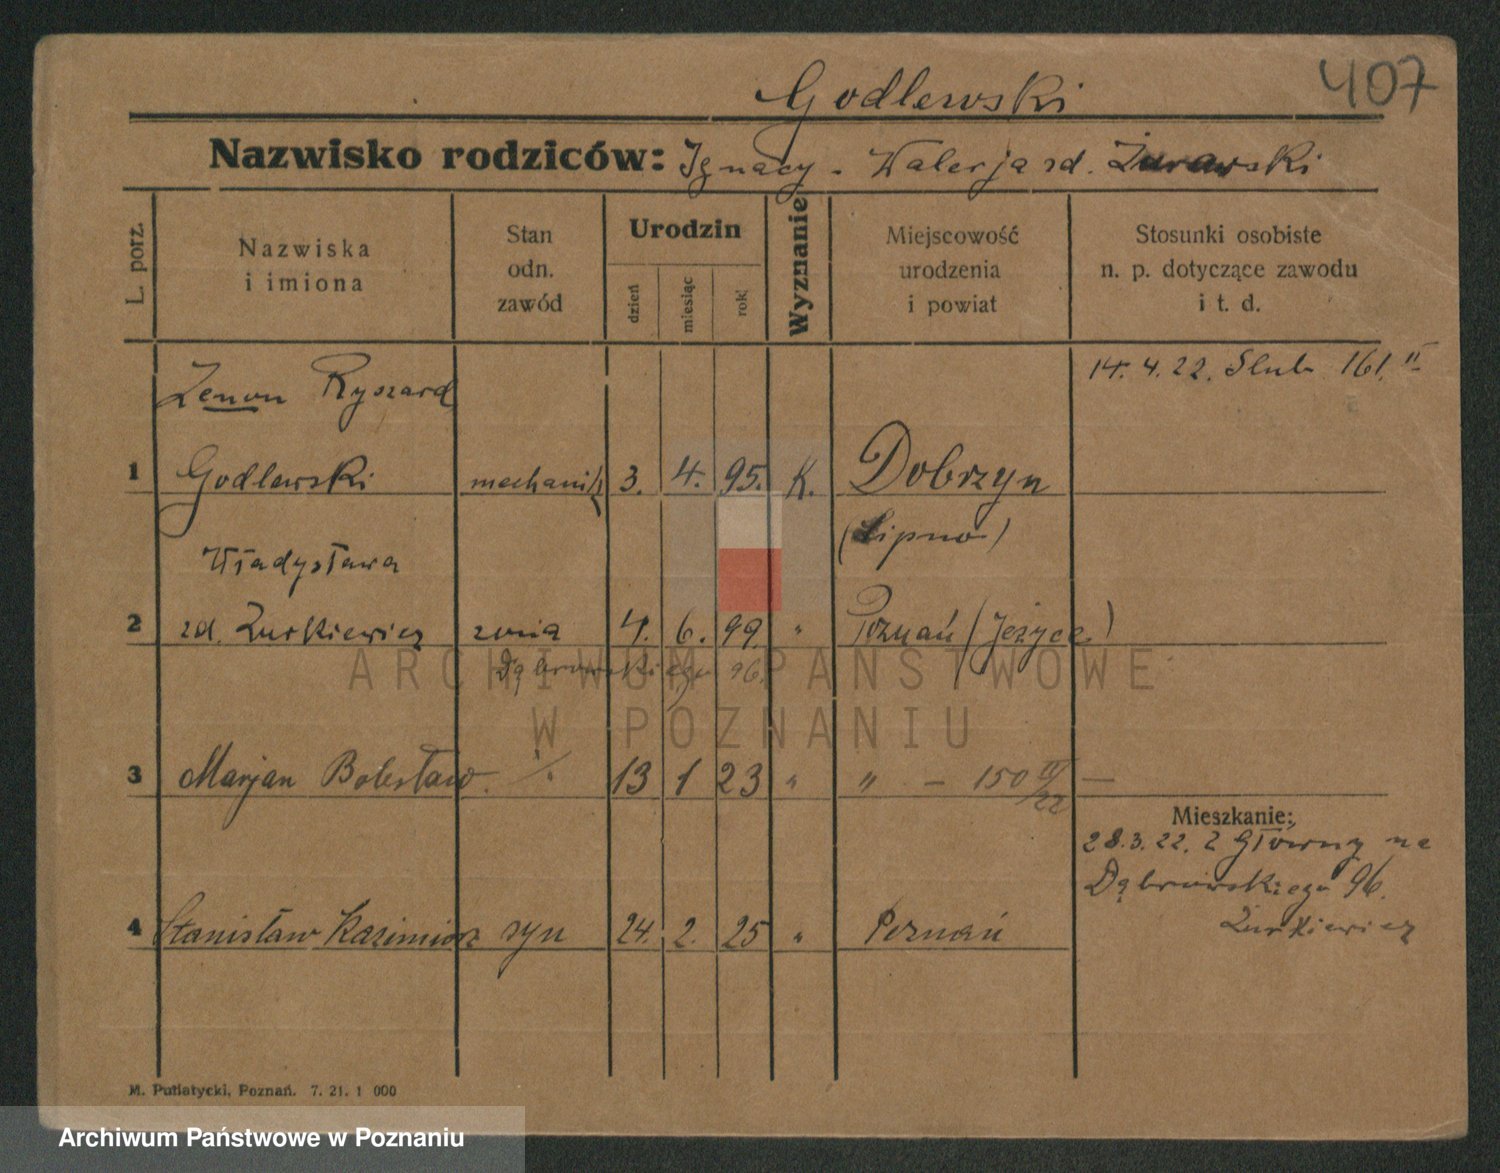 407
Godlewski
Nazwisko rodziców: Ignacy - Walerja zd. Żurawski
L. porz.
Nazwiska
i imiona
Stan
odn.
zawód
Urodzin
dzień
miesiąc
rok
Wyznanie
Miejscowość
urodzenia
i powiat
Stosunki osobiste
n. p. dotyczące zawodu
i t. d.
Zenon Ryszard
14. 4. 22. Slub 161. II
1 Godlewski mechanik 3. 4. 95. K. Dobrzyn
(Lipno)
Władysława
2 zd. Żurkiewicz żona 4. 6. 99. " Poznań (Jeżyce)
Dąbrowskiego 96.
3 Marjan Bolesław 13 1 23 " " - 150 -
Mieszkanie:
28. 3. 22. Z Główny na
Dąbrowskiego 96.
Żurkiewicz
4 Stanisław Kazimierz syn 24. 2. 25 " Poznań
M. Putiatycki, Poznań. 7. 21. 1 000
ARCHIWUM PAŃSTWOWE
W POZNANIU
Archiwum Państwowe w Poznaniu